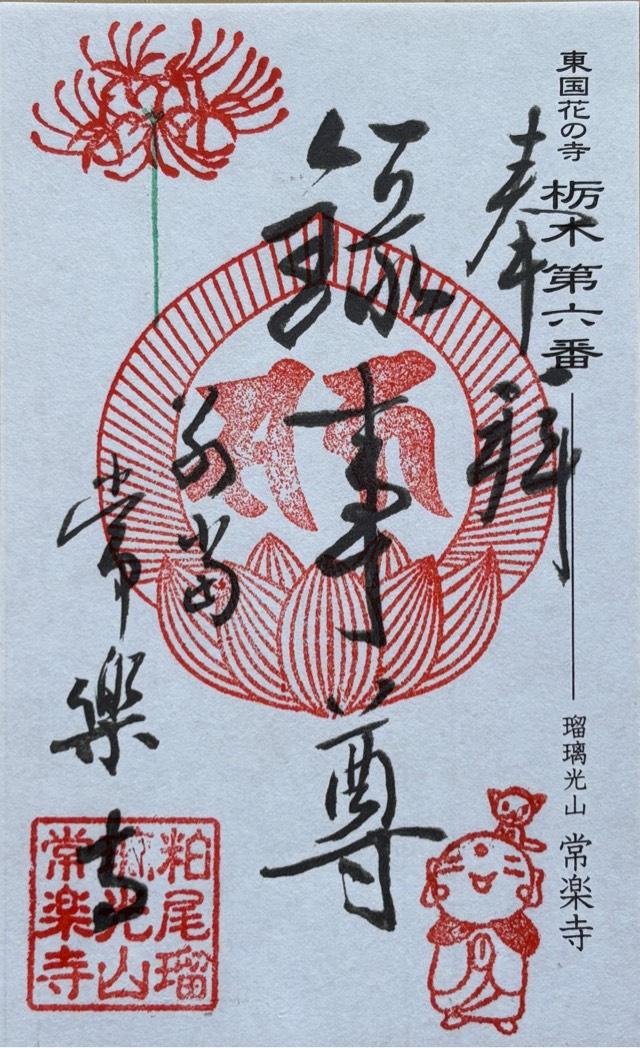 東国花の寺 栃木第六番
瑠璃光山 常楽寺
奉拝
録事尊
別当
常楽寺
粕尾瑠
璃光山
常楽寺